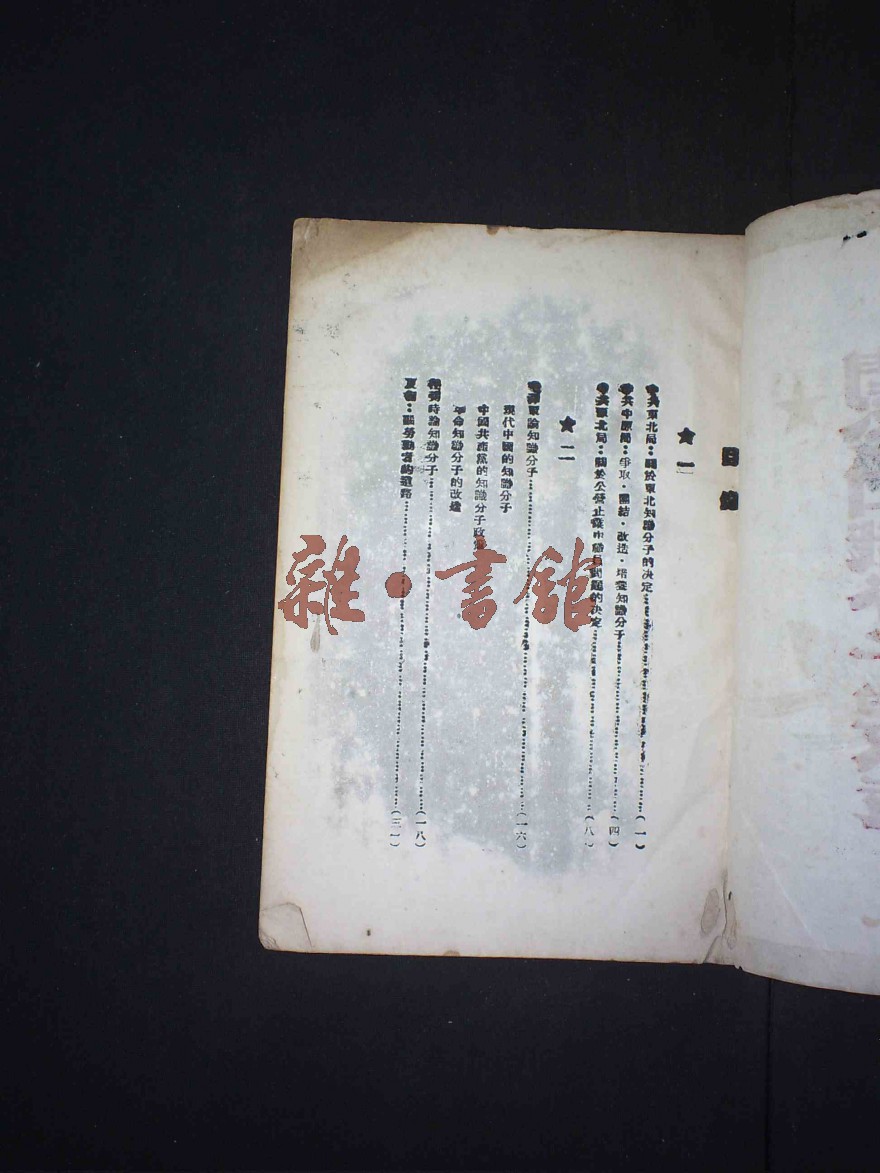 目錄
★一
中共東北局：關於東北知識分子的決定(一)
中共中原局：爭取·團結·改造·培養知識分子(四)
中共東北局：關於公營企業中職員問題的決定(八)
★二
毛澤東論知識分子(一六)
現代中國的知識分子
中國共產黨的知識分子政策
革命知識分子的改造
時論知識分子(一八)
夏衍：論勞動者的道路(三一)
雜·書館